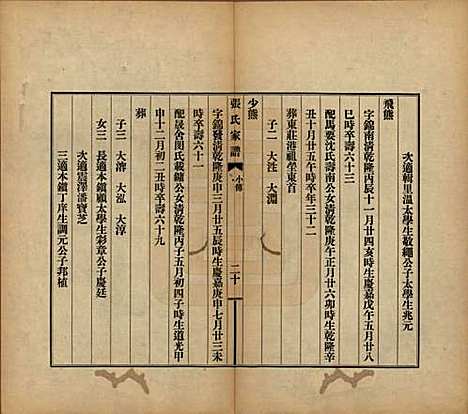 次適輯里溫太學生敬繩公子太學生兆元
飛熊
字錦南清乾隆丙辰十一月廿四亥時生嘉慶戊午五月廿八
巳時卒壽六十三
配馬要沈氏壽南公女清乾隆庚午正月廿六卯時生乾隆辛
丑十月廿五午時卒年三十二
葬東莊港祖塋東首
子二 大泩 大淵
少熊
張氏家譜 小傳 二十
字錦發清乾隆庚申三月廿五辰時生嘉慶庚申七月廿三未
時卒壽六十一
配晟舍閔氏載鏞公女清乾隆丙子五月初四子時生道光甲
申十二月初二丑時卒壽六十九
葬
子三 大濬 大泓 大淳
女三 長適本鎮顧太學生彩章公子慶廷
次適震澤潘寶芝
三適本鎮丁庠生調元公子邦植